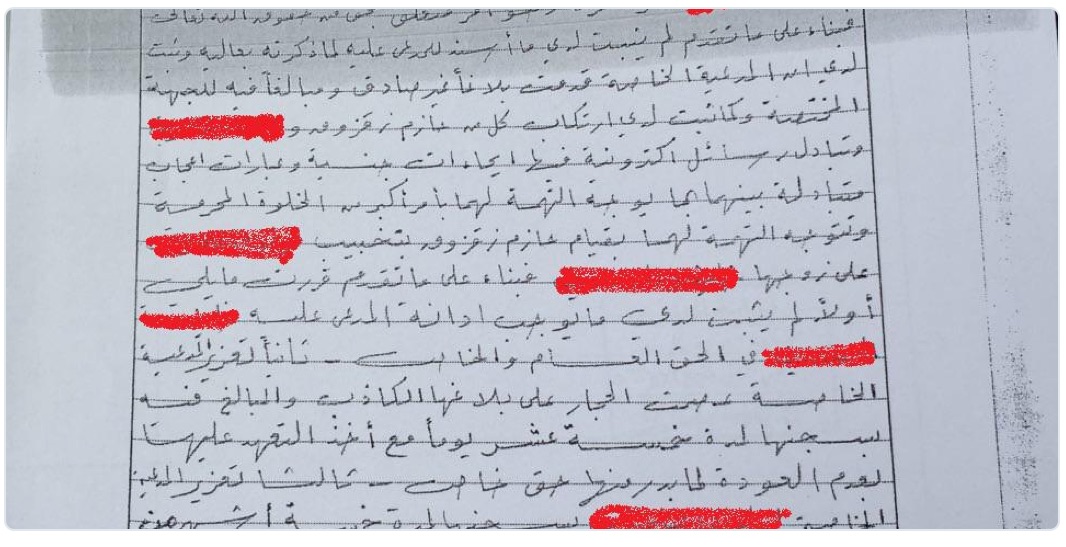 فبناء على ما تقدم لم يثبت لدي ما أسند للمدعى عليه لما ذكرته بعاليه وثبت
لدي ان المدعية الخاصة قدمت بلاغا غير صادق ومبالغا فيه للجهة
المختصة وكما ثبت لدي ارتكاب كل من حازم زقزوق و
وتبادل رسائل الكترونية فيها ايحاءات جنسية وعبارات اعجاب
متبادلة بينهما مما يوجه التهمة لهما بأمر أكبر من الخلوة المحرمة
وتتوجه التهمة لهما بقيام حازم زقزوق بتخبيب
على زوجها فبناء على ما تقدم قررت ما يلي
أولاً لم يثبت لدي ما يوجب ادانة المدعى عليه
في الحق العام والخاص - ثانياً تعزير المدعية
الخاصة الحجار على بلاغها الكاذب والمبالغ فيه
بسجنها لمدة خمسة عشر يوماً مع أخذ التعهد عليها
بعدم العودة لما بدر منها حق خاص - ثالثا تعزير المدعية
الخاصة بسجنها لمدة خمسة أشهر من